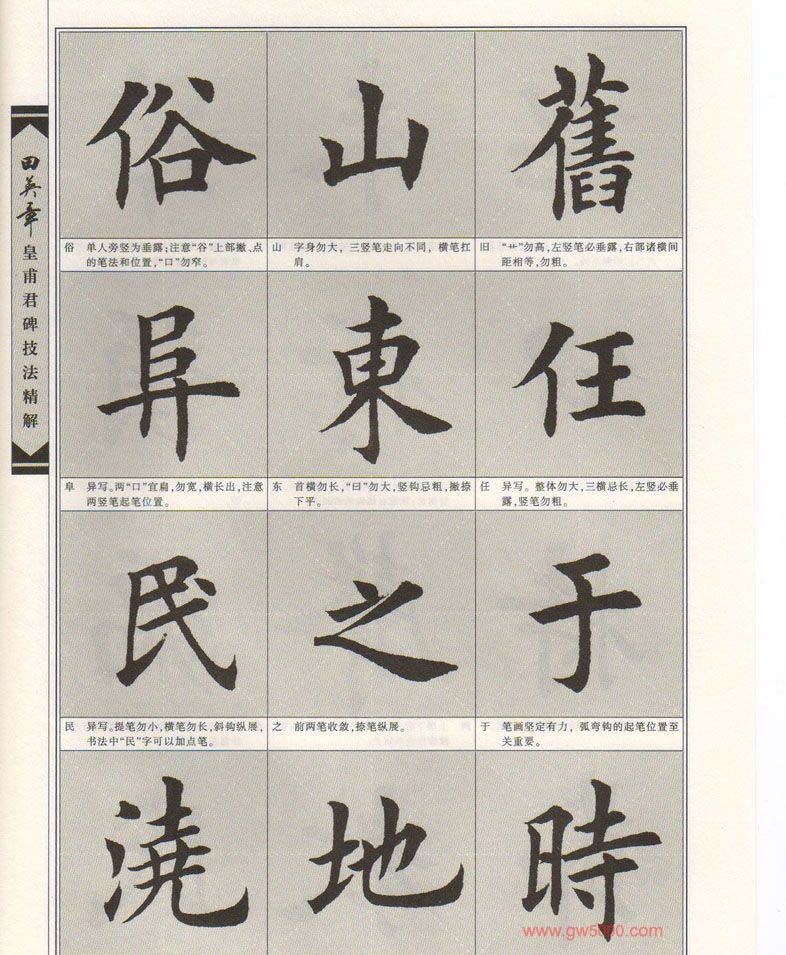 田英章
皇甫君碑技法精解
俗 山 舊
俗 单人旁竖为垂露；注意“谷”上部撇、点
的笔法和位置，“口”勿窄。
山 字身勿大，三竖笔走向不同，横笔扛
肩。
旧 “艹”勿高，左竖笔必垂露，右部诸横间
距相等，勿粗。
阜 東 任
阜 异写。两“口”宜扁，勿宽，横长出，注意
两竖笔起笔位置。
东 首横勿长，“曰”勿大，竖钩忌粗，撇捺
下平。
任 异写。整体勿大，三横忌长，左竖必垂
露，竖笔勿粗。
民 之 于
民 异写。提笔勿小，横笔勿长，斜钩纵展，
书法中“民”字可以加点笔。
之 前两笔收敛，捺笔纵展。
于 笔画坚定有力，弧弯钩的起笔位置至
关重要。
澆 地 時
www.gw5000.com